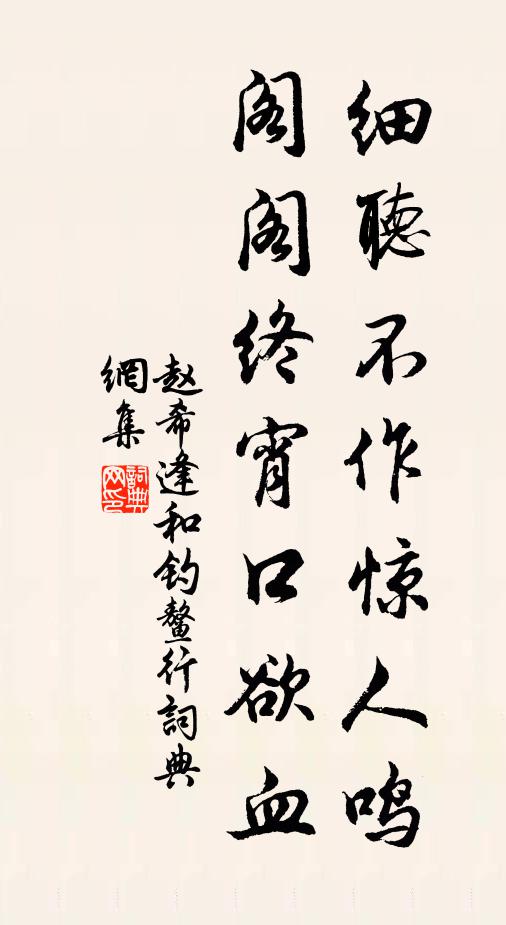 细聽不作惊人鸣
阁阁终宵口欲血
赵希逢和钓鳌行詞典
網集
詞典
网印